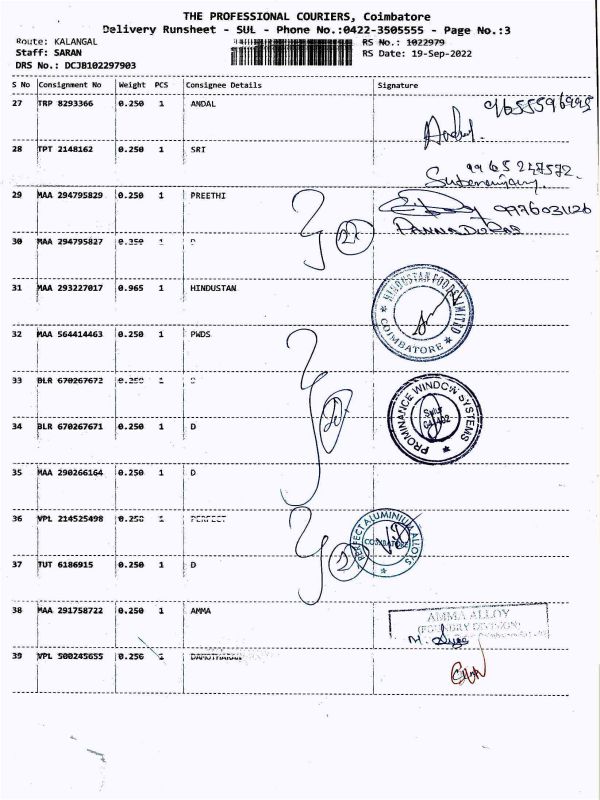 THE PROFESSIONAL COURIERS, Coimbatore
Delivery Runsheet - SUL - Phone No.:0422-3505555 - Page No.:3
Route: KALANGAL
RS No.: 1022979
Staff: SARAN
RS Date: 19-Sep-2022
DRS No.: DCJB102297903
S No Consignment No Weight PCS Consignee Details Signature
27 TRP 8293366 0.250 1 ANDAL 9655596995
28 TPT 2148162 0.250 1 SRI
29 MAA 294795829 0.250 1 PREETHI
30 MAA 294795827 0.350 1 D
31 MAA 293227017 0.965 1 HINDUSTAN HINDUSTAN FOODS LIMITED COIMBATORE
32 MAA 564414463 0.250 1 PWDS
33 BLR 670267672 0.250 1 D PROMINANCE WINDOW SYSTEMS
34 BLR 670267671 0.250 1 D
35 MAA 290266164 0.250 1 D
36 VPL 214525498 0.250 1 PERFECT PERFECT ALUMINIUM ALLOYS COIMBATORE
37 TUT 6186915 0.250 1 D
38 MAA 291758722 0.250 1 AMMA AMMA ALLOY
(FOUNDRY DIVISION)
39 VPL 500245655 0.250 1 DAMOTHARAN